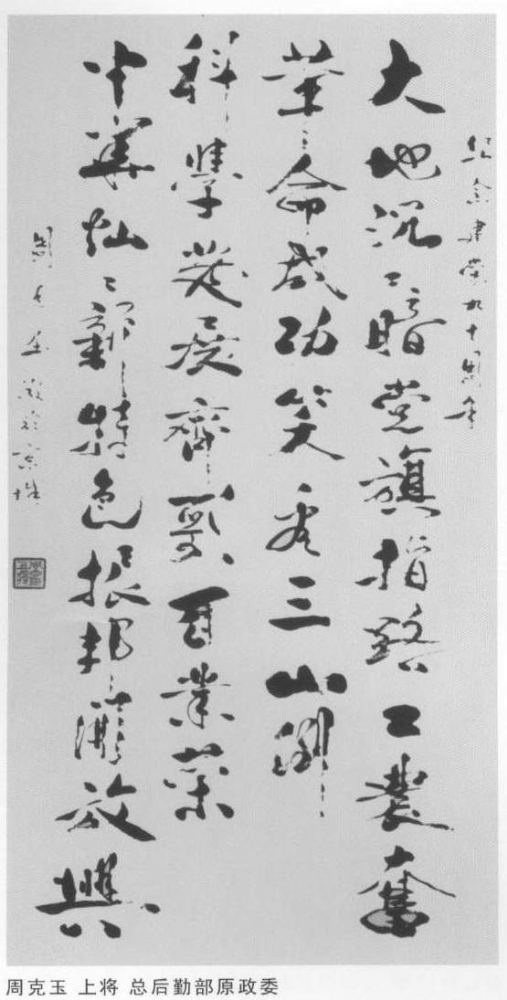 纪念建党九十周年
大地沉々暗党旗指路工農奮
革命成功笑看三山倒
科學发展齊歌百業荣
中華灿々新特色振邦開放興
周克玉敬於京城
周克玉 上将 总后勤部原政委